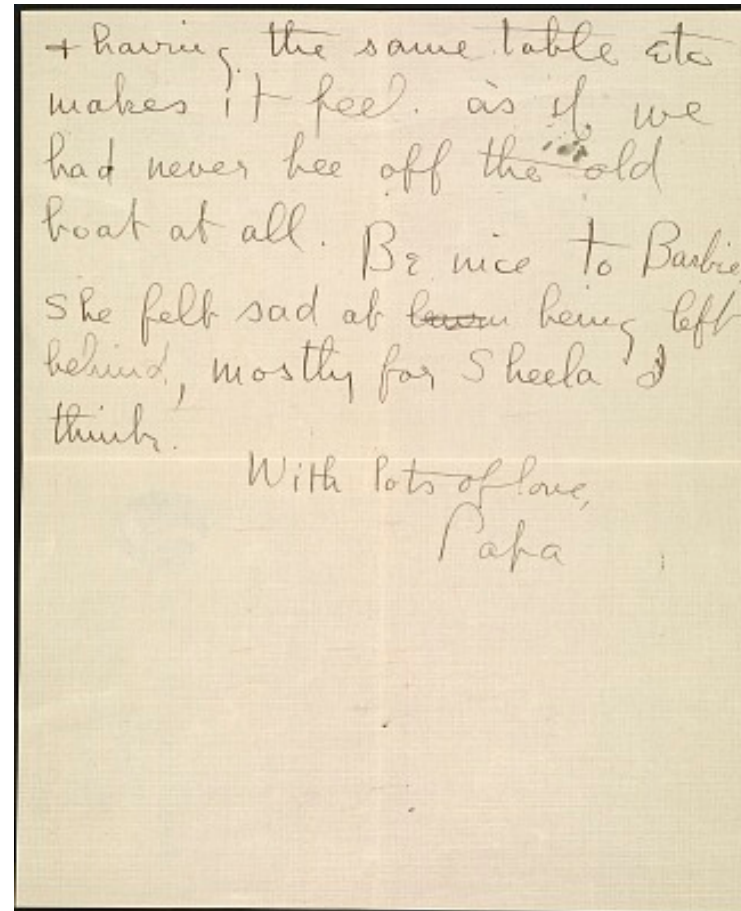 + having the same table etc
makes it feel. as if we
had never bee off the old
boat at all. Be nice to Barbie
She felt sad at being left
behind, mostly for Sheela I
think.
With lots of love,
Papa